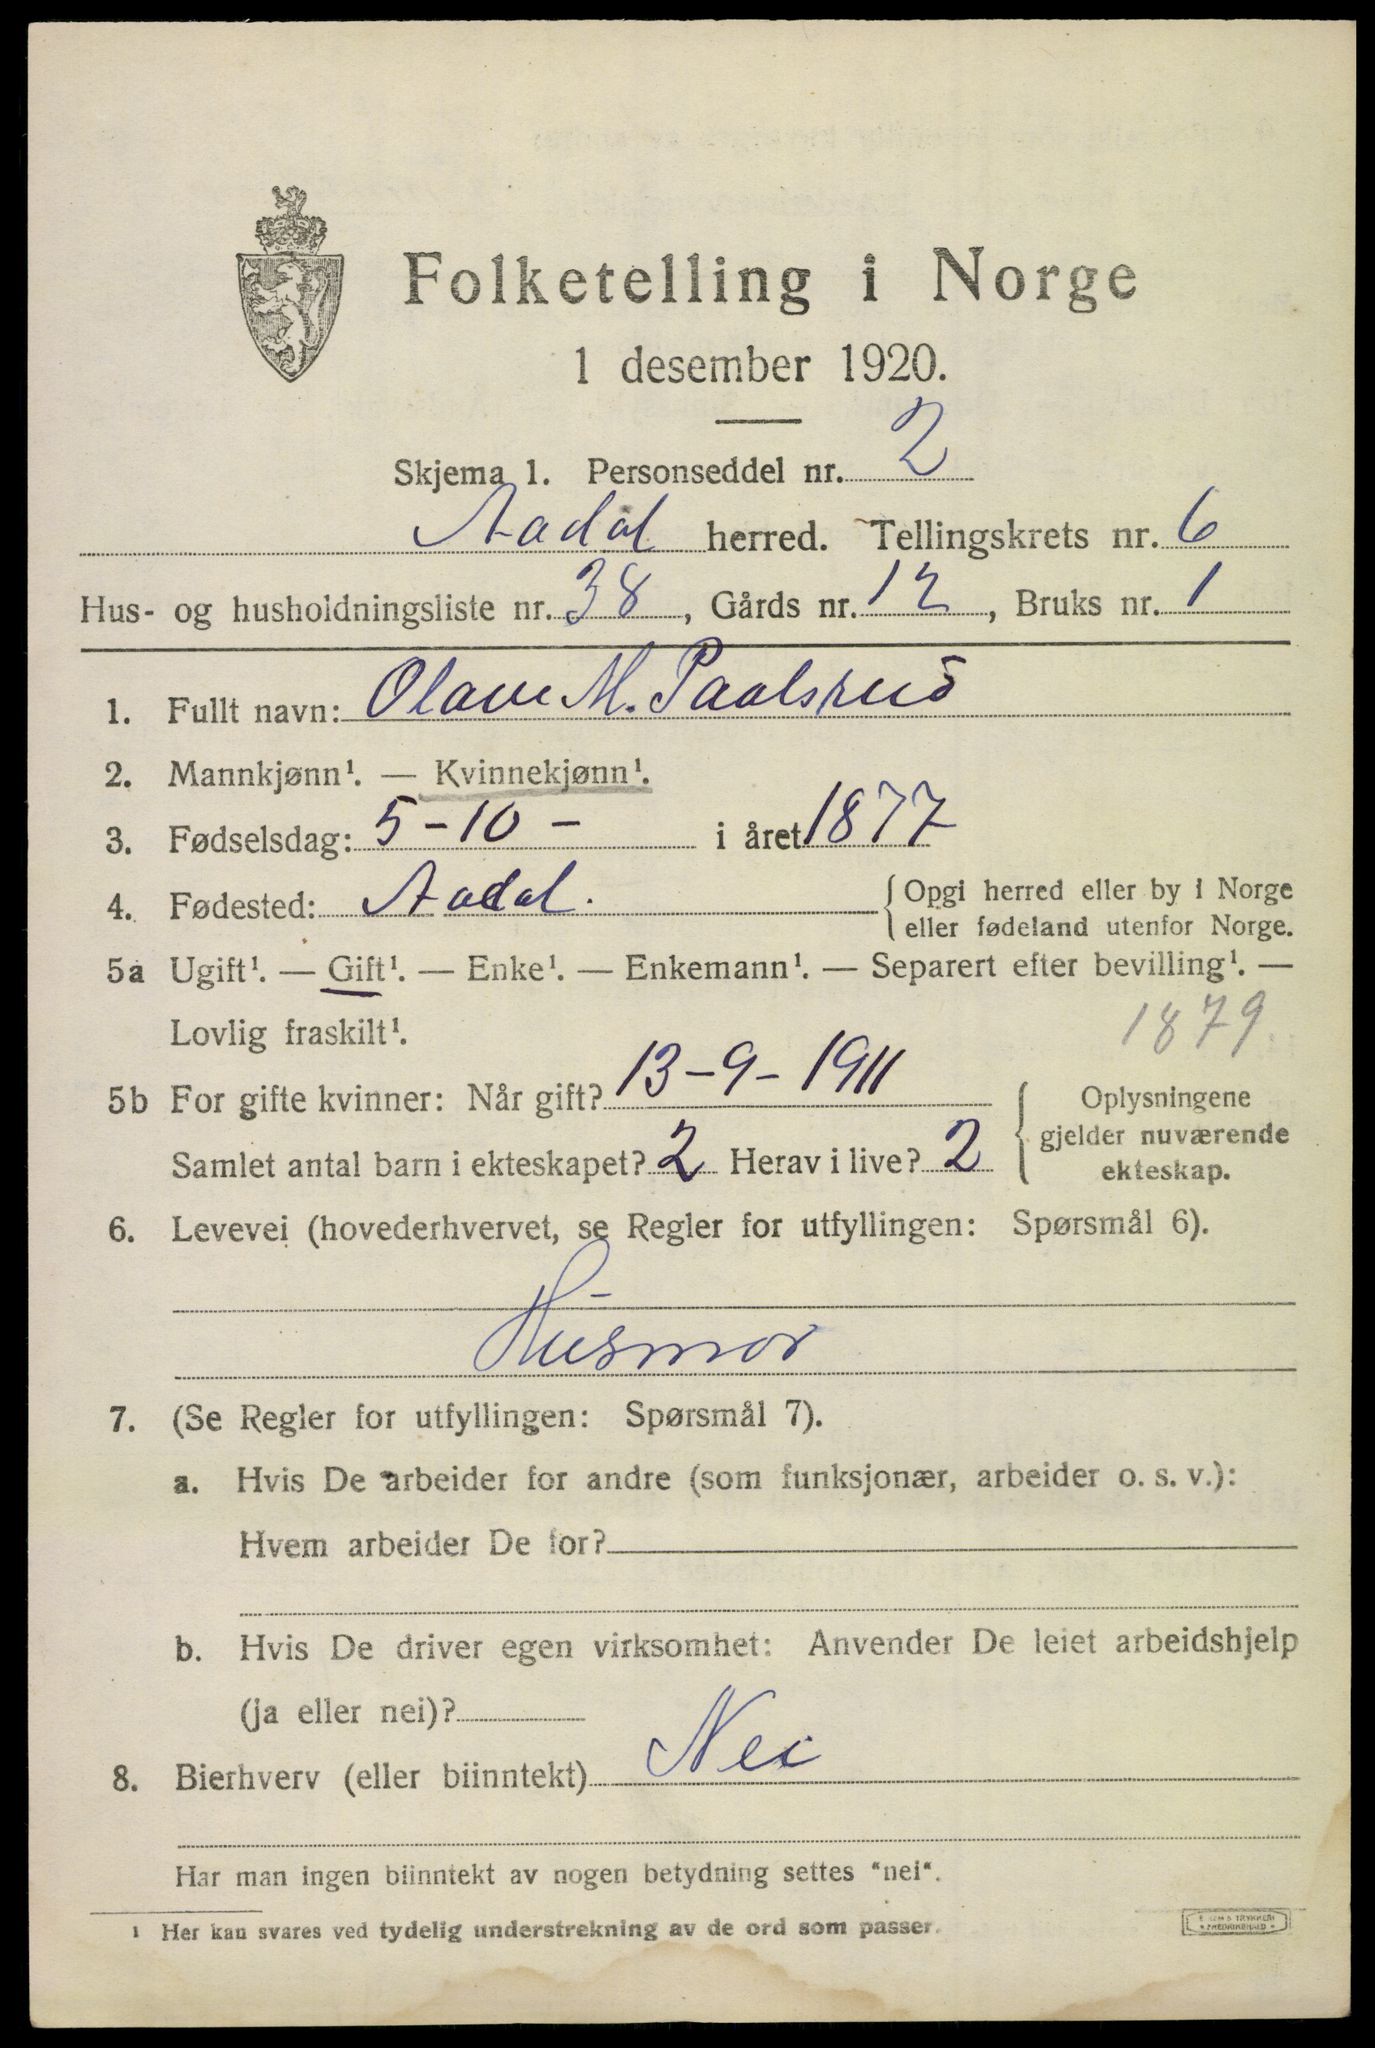 Folketelling i Norge
1 desember 1920.
Skjema 1. Personseddel nr. 2
Aadal herred. Tellingskrets nr. 6
Hus- og husholdningsliste nr. 38, Gårds nr. 12, Bruks nr. 1
1. Fullt navn: Olave M. Paalsrud
2. Mannkjønn¹. — Kvinnekjønn¹.
3. Fødselsdag: 5-10- i året 1877
4. Fødested: Aadal. { Opgi herred eller by i Norge
eller fødeland utenfor Norge.
5a Ugift¹. — Gift¹. — Enke¹. — Enkemann¹. — Separert efter bevilling¹. —
Lovlig fraskilt¹. 1879
5b For gifte kvinner: Når gift? 13-9-1911 { Oplysningene
gjelder nuværende
Samlet antal barn i ekteskapet? 2 Herav i live? 2 ekteskap.
6. Levevei (hovederhvervet, se Regler for utfyllingen: Spørsmål 6).
Husmor
7. (Se Regler for utfyllingen: Spørsmål 7).
a. Hvis De arbeider for andre (som funksjonær, arbeider o. s. v.):
Hvem arbeider De for?
b. Hvis De driver egen virksomhet: Anvender De leiet arbeidshjelp
(ja eller nei)?
8. Bierhverv (eller biinntekt) Nei
Har man ingen biinntekt av nogen betydning settes "nei".
¹ Her kan svares ved tydelig understrekning av de ord som passer.